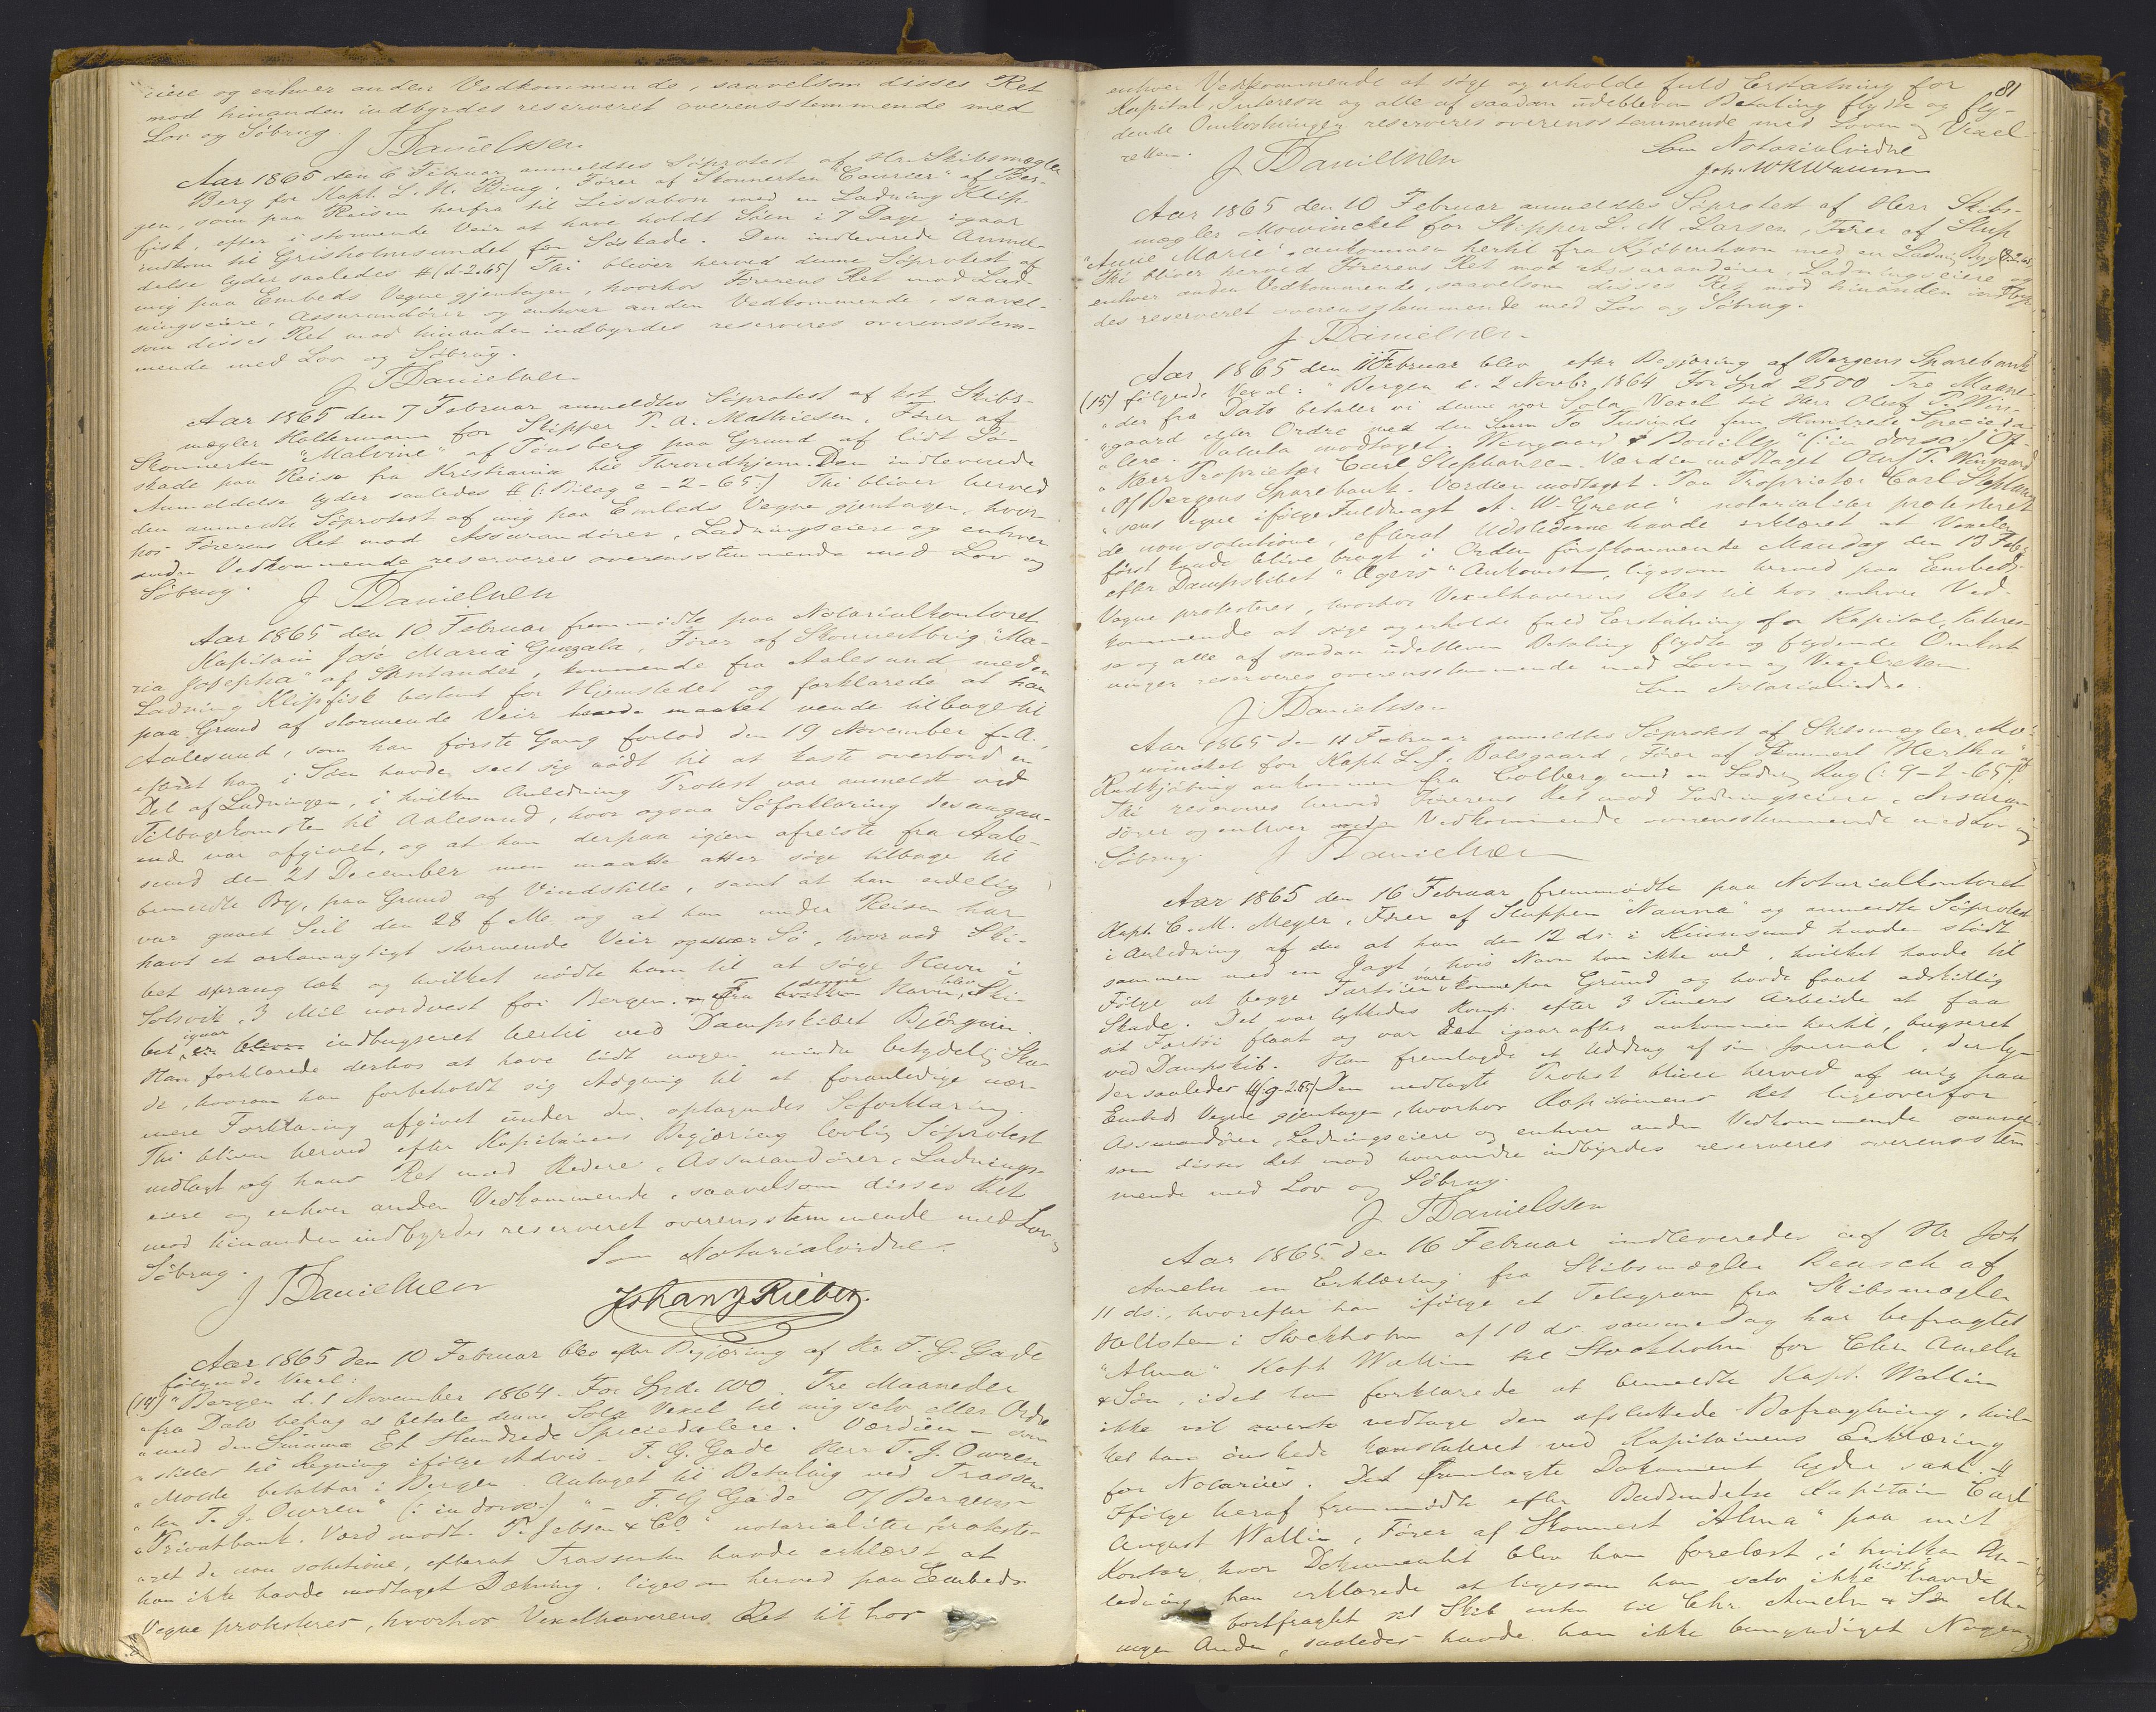 eiere og enhver anden Vedkommende, saavelsom disses Ret
mod hinanden indbyrdes reserveret overensstemmende med
Lov og Söbrug.
J Danielssen
Aar 1865 den 6 Februar anmeldtes Söprotest af Hr. Skibsmægler
Berg for Kapt. L. H. Bing, Förer af Skonnerten "Courier" af Ber-
gen, som paa Reisen herfra til Lissabon med en Ladning Klip-
fisk, efter i stormende Veir at have holdt Söen i 7 Dage igaar
indkom til Grisholmsundet for Söskade. Den indleverede Anmel-
delse lyder saaledes # (d-2-65) Thi bliver herved denne Söprotest af
mig paa Embeds Vegne gjentagen, hvorhos Förerens Ret mod Lad-
ningseiere, Assurandörer og enhver anden Vedkommende, saavel-
som disses Ret mod hinanden indbyrdes reserveres overensstem-
mende med Lov og Söbrug.
J Danielssen
Aar 1865 den 7 Februar anmeldtes Söprotest af Skibs-
mægler Holtermann for Skipper T. A. Mathiesen, Förer af
Skonnerten "Malvine" af Tönsberg paa Grund af lidt Sö-
skade paa Reise fra Kristiania til Throndhjem. Den indleverede
Anmeldelse lyder saaledes # (: Bilag e-2-65:) Thi bliver herved
den anmeldte Söprotest af mig paa Embeds Vegne gjentagen, hvor-
hos Förerens Ret mod Assurandörer, Ladningseiere og enhver
anden Vedkommende reserveres overensstemmende med Lov og
Söbrug.
J Danielssen
Aar 1865 den 10 Februar fremmödte paa Notarialkontoret
Kapitain José Maria Guezala, Förer af Skonnertbrig "Ma-
ria Josepha" af Santander, kommende fra Aalesund med en
Ladning Klipfisk bestemt for Hjemstedet og forklarede at han
paa Grund af stormende Veir havde maattet vende tilbage til
Aalesund, som han förste Gang forlod den 19 November f. A.,
efterat han i Söen havde seet sig nödt til at kaste overbord en
Del af Ladningen, i hvilken Anledning Protest var anmeldt ved
Tilbagekomsten til Aalesund, hvor ogsaa Söforklaring desangaa-
ende var afgivet, og at han derpaa igjen afreiste fra Aale-
sund den 21 December men maatte atter söge tilbage til
bemeldte By, paa Grund af Vindstille, samt at han endelig
var gaaet Seil den 28 f. M. og at han under Reisen har
havt et orkanagtigt stormende Veir og svær Sö, hvorved Ski-
bet sprang læk og hvilket nödte ham til at söge Havn i
Solsvik, 3 Mil nordvest for Bergen. Fra denne Havn blev Ski-
bet igaar indbugseret hertil ved Dampskibet Björgvin.
Han forklarede derhos at have lidt nogen mindre betydelig Ska-
de, hvorom han forbeholdt sig Adgang til at foranledige nær-
mere Forklaring afgivet under den optagendes Söforklaring.
Thi bliver herved efter Kapitainens Begjæring lovlig Söprotest
nedlagt og hans Ret mod Redere, Assurandörer, Ladnings-
eiere og enhver anden Vedkommende, saavelsom disses Ret
mod hinanden indbyrdes reserveret overensstemmende med Lov og
Söbrug.
Som Notarialvidne
J Danielssen
Johan G Rieber.
Aar 1865 den 10 Februar blev efter Begjæring af Hr. F. G. Gade
følgende Vexel:
(14) "Bergen d. 1 November 1864. For Spd. 100. Tre Maaneder
"fra Dato behag at betale denne Sola Vexel til mig selv eller Ordre
"med den Summa Et Hundrede Speciedalere. Værdien - som
"stilles til Regning ifölge Advis - F. G. Gade Herr T. J. Owren
"Molde betalbar i Bergen. Antaget til Betaling ved Trassen-
"ten T. J. Owren" (: in dorso:) " - F. G Gade O/ Bergens
"Privatbank. Værd modt. P. Jebsen & Co." notarialiter proteste-
ret de non solutione, efterat Trassenten havde erklæret at
han ikke havde modtaget Dækning, ligesom herved paa Embeds
Vegne protesteres, hvorhos Vexelhaverens Ret til hos
81
enhver Vedkommende at söge og erholde fuld Erstatning for
Kapital, Interesse og alle af saadan udebleven Betaling flydte og fly-
dende Omkostninger reserveres overensstemmende med Loven og Vexel-
retten.
Som Notarialvidne
J Danielssen
Aar 1865 den 10 Februar anmeldtes Söprotest af Herr Skibs-
mægler Mowinckel for Skipper L. M. Larsen, Förer af Slup
"Anne Marie", ankommen hertil fra Kjöbenhavn med en Ladning Byg
Thi bliver herved Förerens Ret mod Assurandörer, Ladningseiere og
enhver anden Vedkommende, saavelsom disses Ret mod hinanden indbyr-
des reserveret overensstemmende med Lov og Söbrug.
J Danielssen
Aar 1865 den 11 Februar blev efter Begjæring af Bergens Sparebank
(15) fölgende Vexel: "Bergen d. 2 Novbr 1864 For Spd 2500 Tre Maane-
"der fra Dato betaler vi denne vor Sola Vexel til Herr Oluf T. Win-
"gaard eller Ordre med den Sum To Tusinde fem Hundrede Spesieda-
"lere. Valuta modtaget. Wingaard & Bouilly" (: in dorso:) O/
"Herr Proprietær Carl Stephansen. Værdien modtaget Oluf T. Wingaard
"O/ Bergens Sparebank. Værdien modtaget. Paa Proprietær Carl Stephan-
"sens Vegne ifölge Fuldmagt A. W. Greve" notarialiter protesteret
de non solutione, efterat Udstederne havde erklæret at Vexelen
först kunde blive bragt i Orden förstkommende Mandag den 13 Febr
efter Dampskibet "Ægers" Ankomst, ligesom herved paa Embeds
Vegne protesteres, hvorhos Vexelhaverens Ret til hos enhver Ved-
kommende at söge og erholde fuld Erstatning for Kapital, Interes-
se og alle af saadan udebleven Betaling flydte og flydende Omkost-
ninger reserveres overensstemmende med Loven og Vexelretten.
Som Notarialvidne.
J Danielssen
Aar 1865 den 11 Februar anmeldtes Söprotest af Skibsmægler Mo-
winckel for Kapt L. J. Balsgaard, Förer af Skonnert "Hertha" af
Rudkjöbing ankommen fra Colberg med en Ladning Rug (: 9-2-65:).
Thi reserveres herved Förerens Ret mod Ladningseiere, Assuran-
dörer og enhver anden Vedkommende overensstemmende med Lov og
Söbrug.
J Danielssen
Aar 1865 den 16 Februar fremmödte paa Notarialkontoret
Kapt. C. M. Meyer, Förer af Sluppen "Nanna" og anmeldte Söprotest
i Anledning af at han den 12 ds. i Krimsund havde stödt
sammen med en Jagt, hvis Navn han ikke ved, hvilket havde til
Fölge at begge Fartöier vare komne paa Grund og havde faaet adskillig
Skade. Det var lykkedes Komp. efter 3 Timers Arbeide at faa
sit Fartöi flaat og var det igaar aftes ankommen hertil, bugseret
ved Dampskib. Han fremlagde et Uddrag af sin Journal, der ly-
der saaledes # (g-2-65) Den nedlagte Protest bliver herved af mig paa
Embeds Vegne gjentagen, hvorhos Kapitainens Ret ligeoverfor
Assurandörer, Ladningseiere og enhver anden Vedkommende saavel-
som disses Ret mod hverandre indbyrdes reserveres overensstem-
mende med Lov og Söbrug.
J Danielssen
Aar 1865 den 16 Februar indleveredes af Hr Joh
Ameln en Erklæring fra Skibsmægler Reusch af
11 ds., hvorefter han ifölge et Telegram fra Skibsmægler
Hellsten i Stockholm af 10 ds samme Dag har befragtet
"Alma" Kapt Wallin til Stockholm for Chr Ameln
& Sön, idet han forklarede at bemeldte Kapt. Wallin
ikke vil vedtage den afsluttede Befragtning, hvil-
ket han önskede konstateret ved Kapitainens Erklæring
for Notarius. Det fremlagte Dokument lyder saal. #
Ifölge heraf fremmödte efter Budsendelse Kapitain Carl
August Wallin, Förer af Skonnert "Alma" paa mit
Kontor, hvor Dokumentet blev ham forelæst, i hvilken An-
ledning han erklærede at ligesom han selv ikke hidtil havde
bortfragtet sit Skib enten til Chr Ameln & Sön eller
nogen Anden, saaledes havde han ikke bemyndiget Nogen